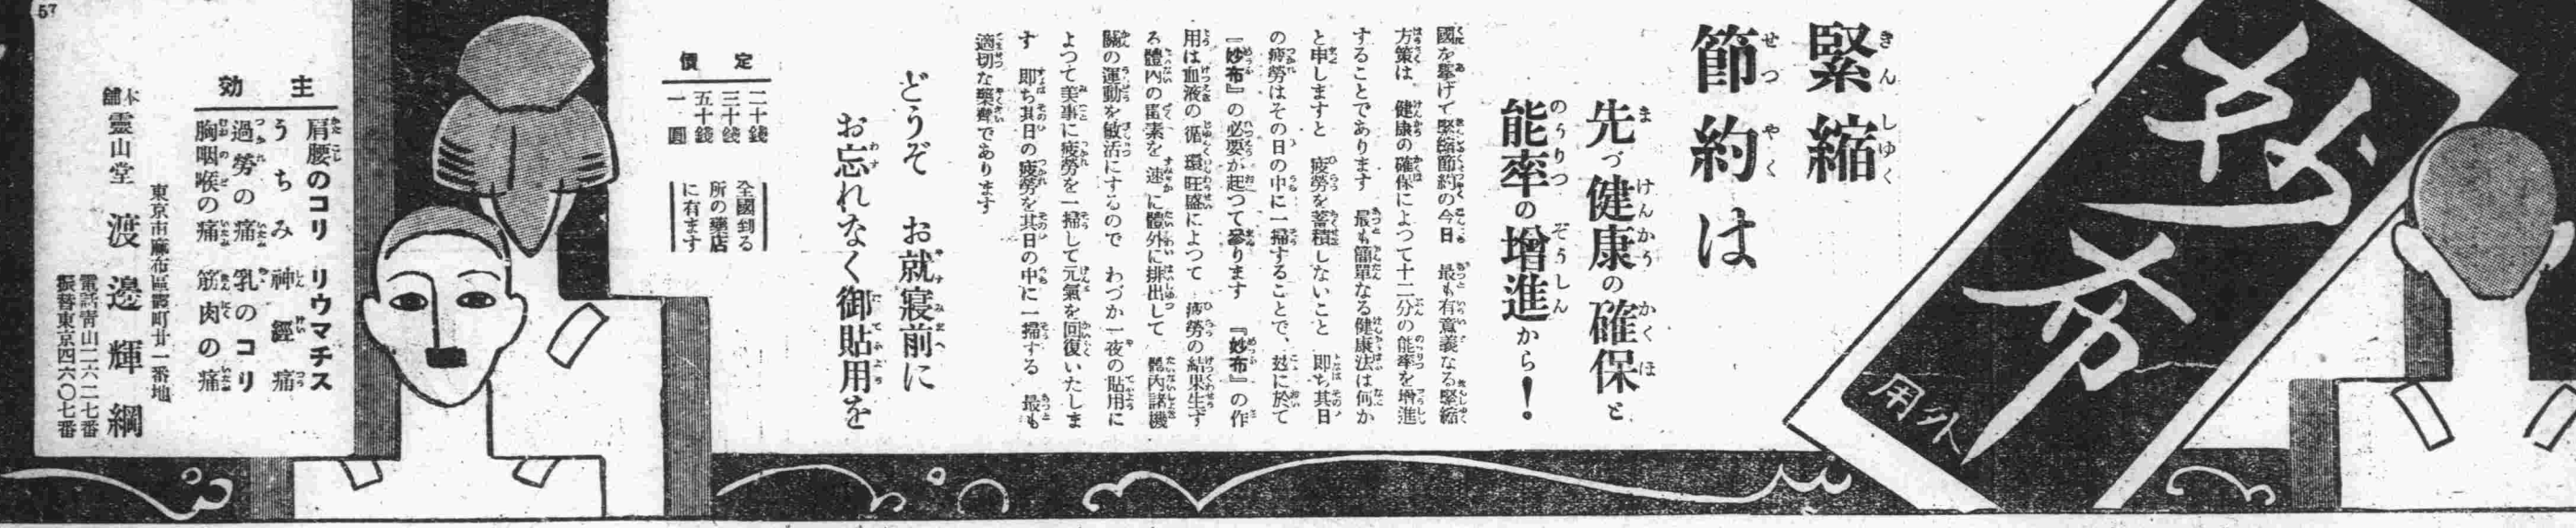 妙布
外用
緊縮
節約は
先づ健康の確保と
能率の増進から!
國を擧げて緊縮節約の今日 最も有意義なる緊縮
方策は 健康の確保によつて十二分の能率を増進
することであります 最も簡單なる健康法は何か
と申しますと 疲勞を蓄積しないこと 即ち其日
の疲勞はその日の中に一掃することで、玆に於て
『妙布』の必要が起つて參ります 『妙布』の作
用は血液の循環旺盛によつて 疲勞の結果生ず
る體内の毒素を 速に體外に排出して 體内諸機
關の運動を敏活にするので わづか一夜の貼用に
よつて美事に疲勞を一掃して元氣を回復いたしま
す 即ち其日の疲勞を其日の中に一掃する 最も
適切な藥劑であります
どうぞ お就寢前に
お忘れなく御貼用を
定價
二十錢
三十錢
五十錢
一圓
全國到る
所の藥店
に有ます
主効
肩腰のコリ リウマチス
うちみ 神經痛
過勞の痛 乳のコリ
胸咽喉の痛 筋肉の痛
東京市麻布區霞町廿一番地
本舖 靈山堂 渡邊輝綱
電話靑山二六二七番
振替東京四六〇七番
57